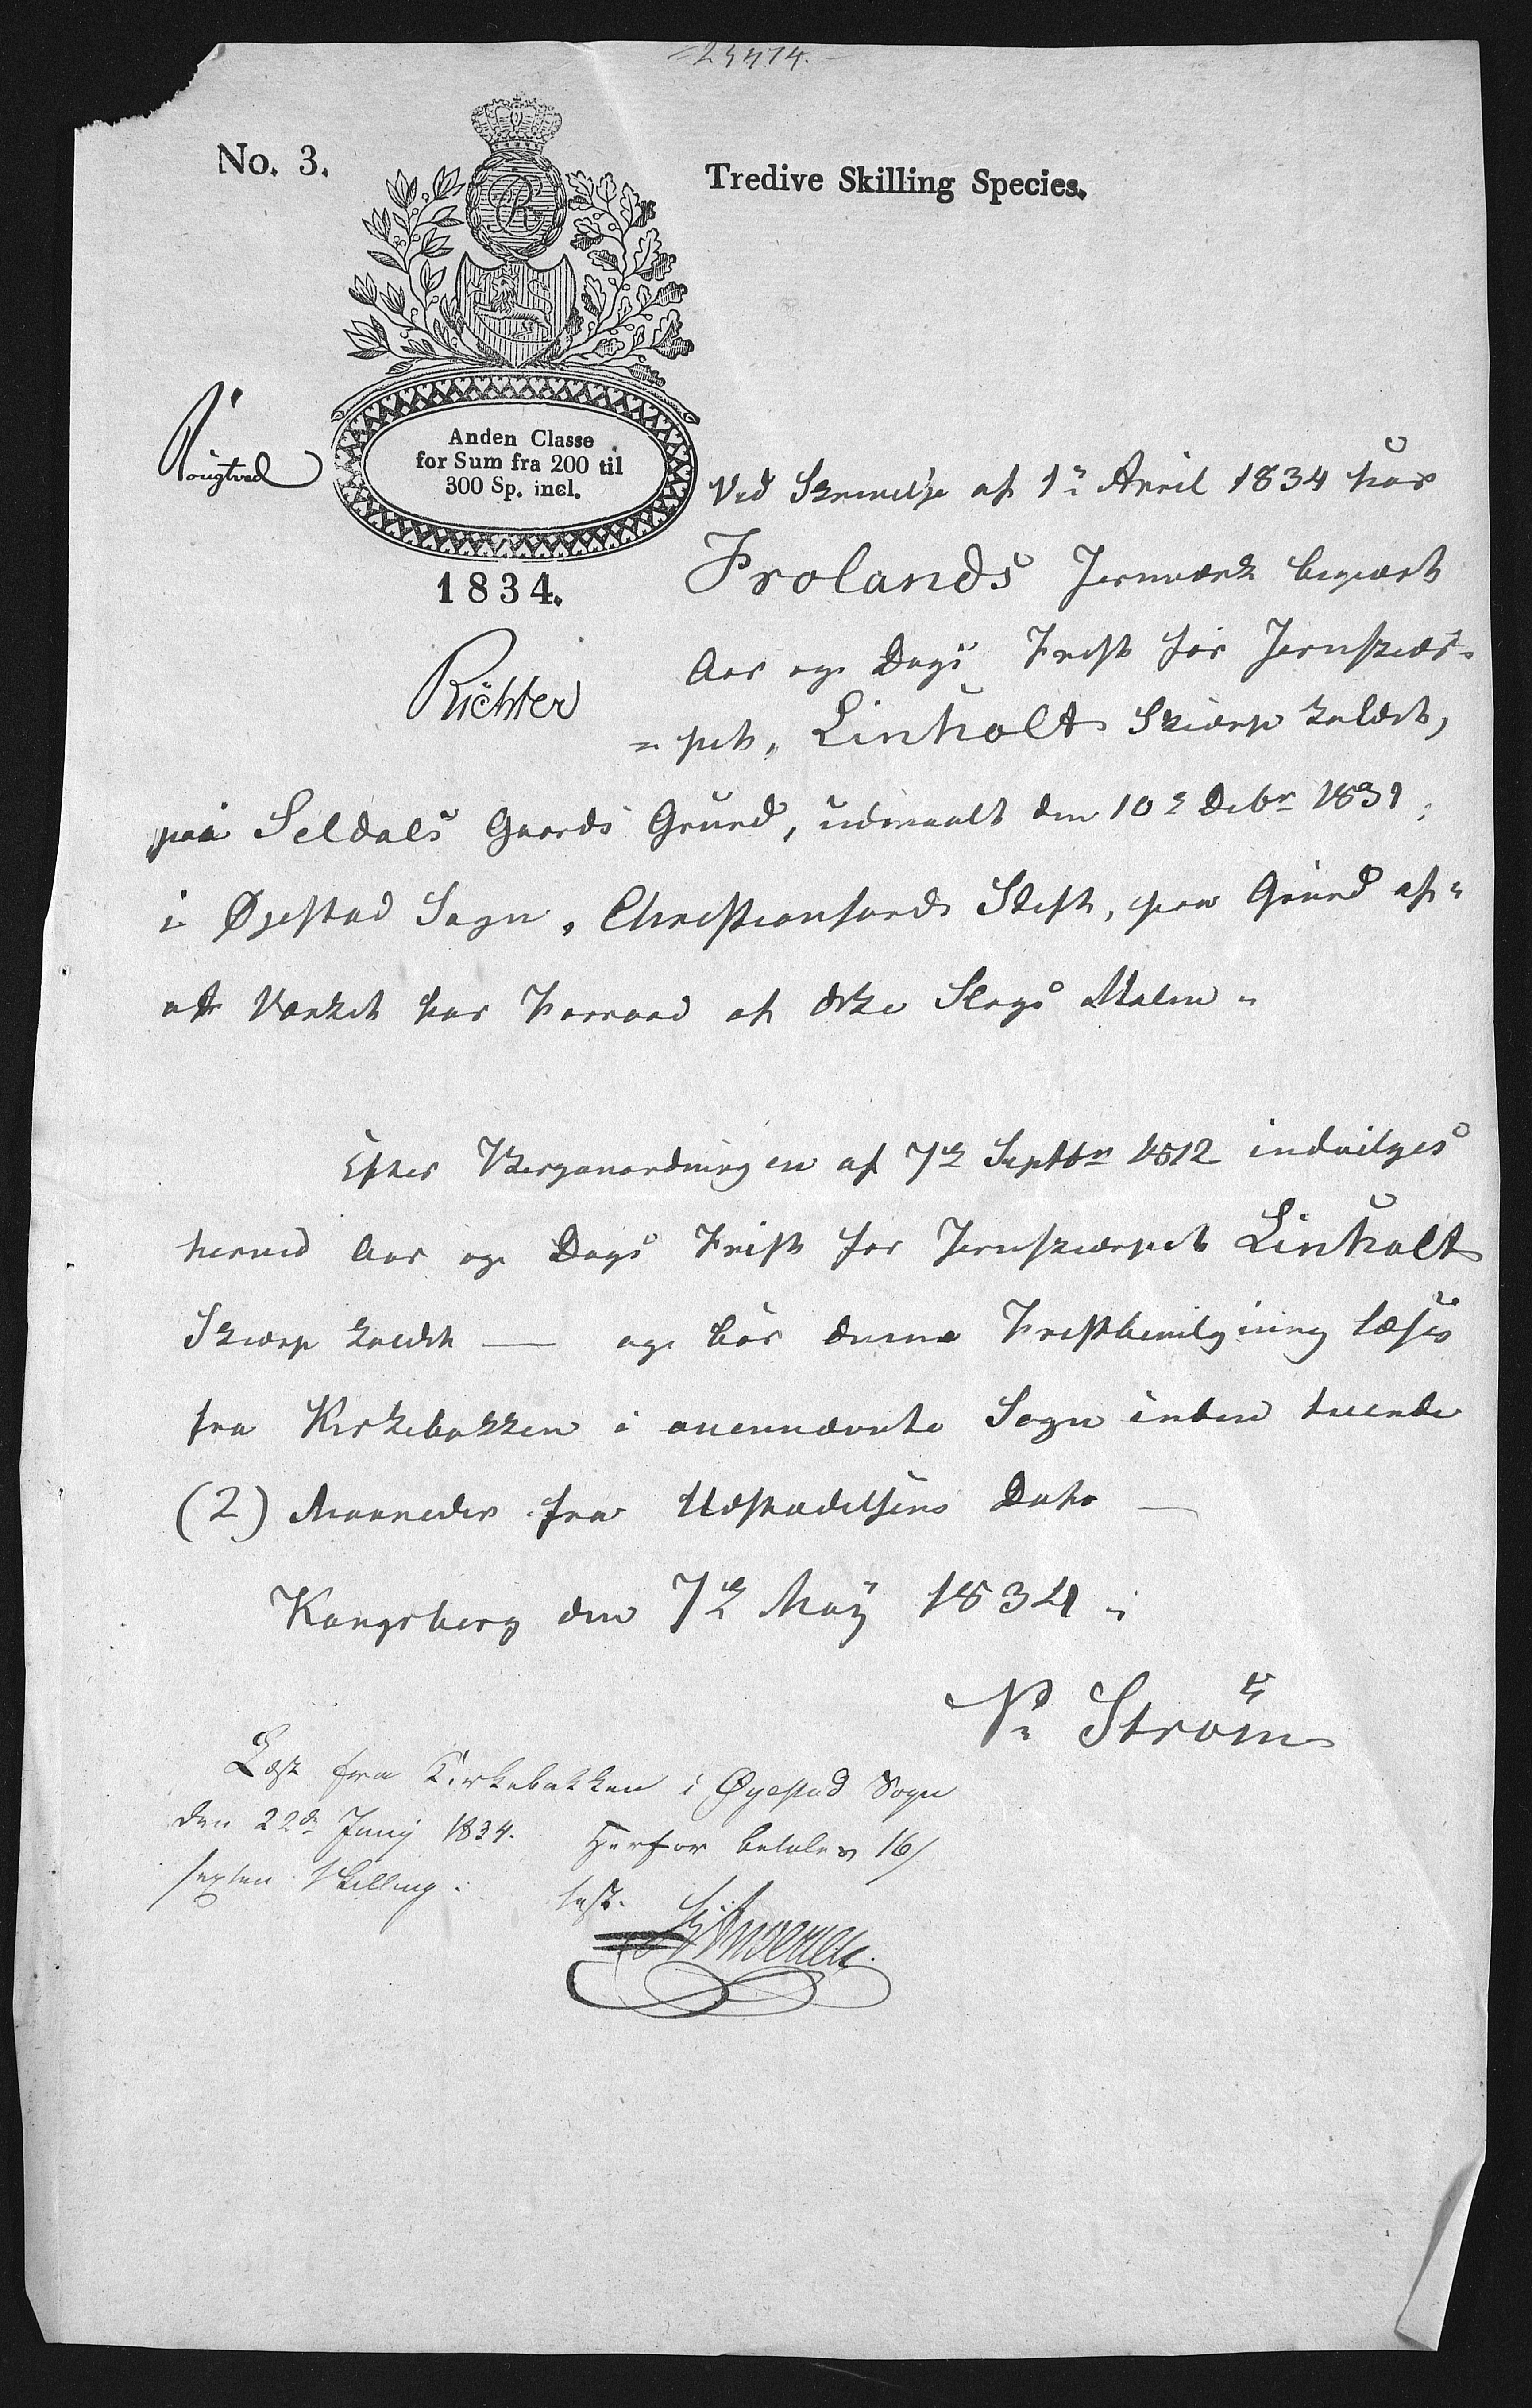 No. 3.
Tredive Skilling Species.
Anden Classe
for Sum fra 200 til
300 Sp. incl.
1834.
Richter
Ved Skrivelse af 1ste April 1834 har
Frolands Jernværk begiert
Aar og Dags Frist for Jernskiær-
=pet, Linholt Skiærp kaldet,
paa Seldals Gaards Grund, udmaalt den 10de Debr 1831,
i Øjestad Sogn, Christiansands Stift, paa Grund af
at Værket har Forraad af dette Slags Malm.
Efter Berganordningen af 7de Septbr 1812 indvilges
herved Aar og Dags Frist for Jernskiærpet Linholt
Skiærp kaldet — og bør denne Fristbevilgning læses
fra Kirkebakken i ovennævnte Sogn inden tvende
(2) Maaneder fra Udstædelsens Dato —
Kongsberg den 7de May 1834.
Strøm
Læst fra Kirkebakken i Øyestad Sogn
den 22de Junij 1834. Herfor betales 16/
sexten Skilling.
test.